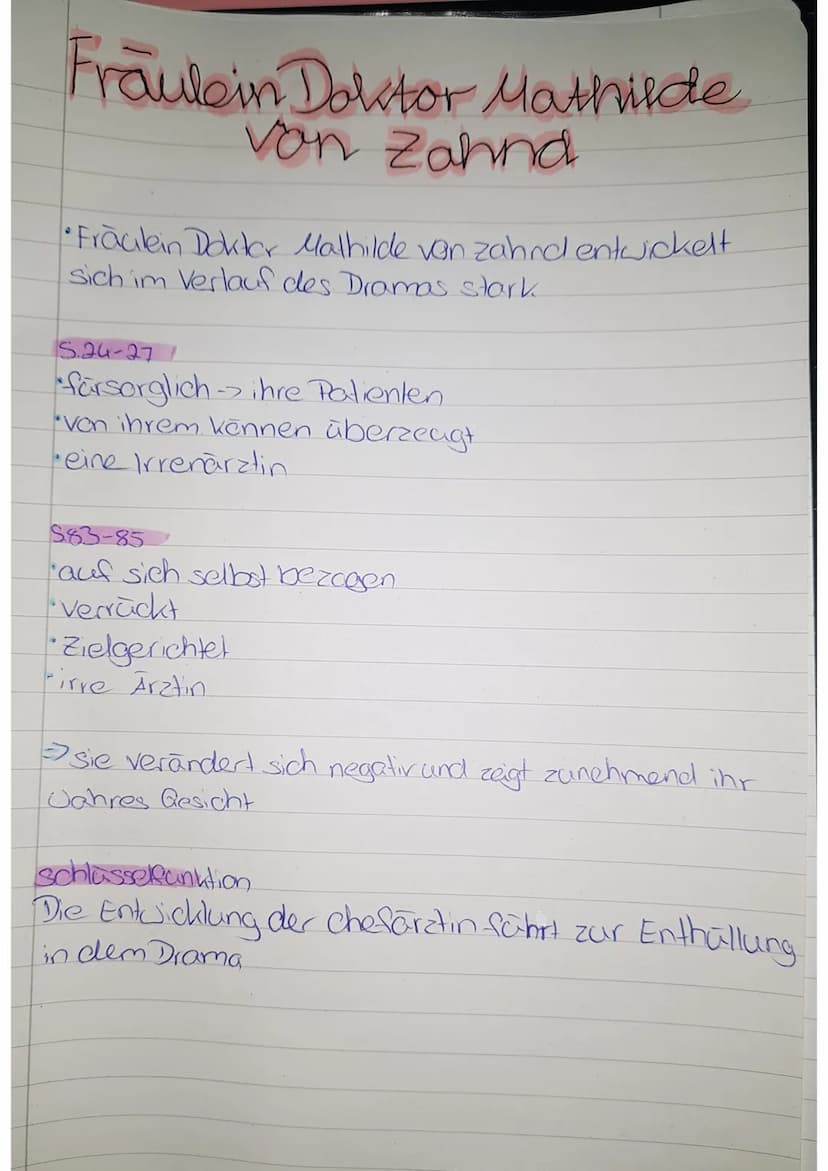 Fräulein Doktor Mathilde
von Zahnd
• Fräulein Doktor Mathilde von zahnd entwickelt
sich im Verlauf des Dramas stark
S.24-27
• fürsorglich -> ihre Patienten
• von ihrem können überzeugt
• eine Irrenärztin
S.83-85
• auf sich selbst bezogen
• verrückt
• Zielgerichtet
• irre Ärztin
=> sie verändert sich negativ und zeigt zunehmend ihr
wahres Gesicht
schlüsselfunktion
Die Entwicklung der chefärztin führt zur Enthüllung
in dem Drama